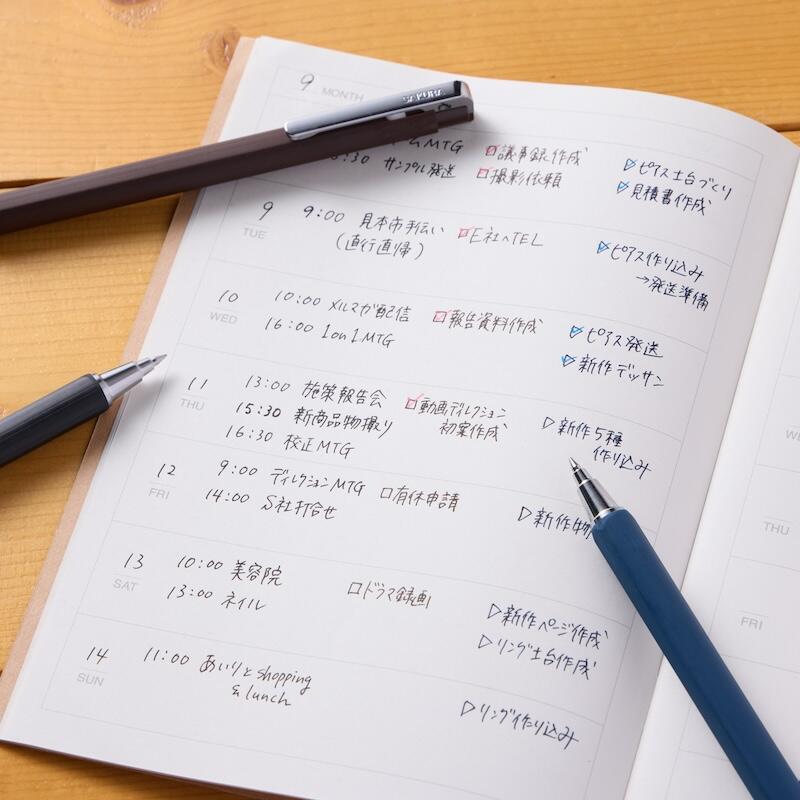 9 MONTH
SAKURA
MTG □議事録作成 ▷ピアス土台づくり
:30 サンプル発送 □撮影依頼 ▷見積書作成
9 TUE 9:00 見本市手伝い □E社へTEL ▷ピアス作り込み
(直行直帰) →発送準備
10 WED 10:00 メルマガ配信 □報告資料作成 ▷ピアス発送
16:00 1on1MTG ▷新作デッサン
11 THU 13:00 施策報告会 □動画ディレクション ▷新作5種
15:30 新商品物撮り 初案作成 作り込み
16:30 校正MTG
12 FRI 9:00 ディレクションMTG □有休申請 ▷新作物
14:00 S社打合せ
13 SAT 10:00 美容院 □ドラマ録画 ▷新作ページ作成
13:00 ネイル ▷リング土台作成
14 SUN 11:00 あいりとshopping
& lunch ▷リング作り込み
THU
FRI